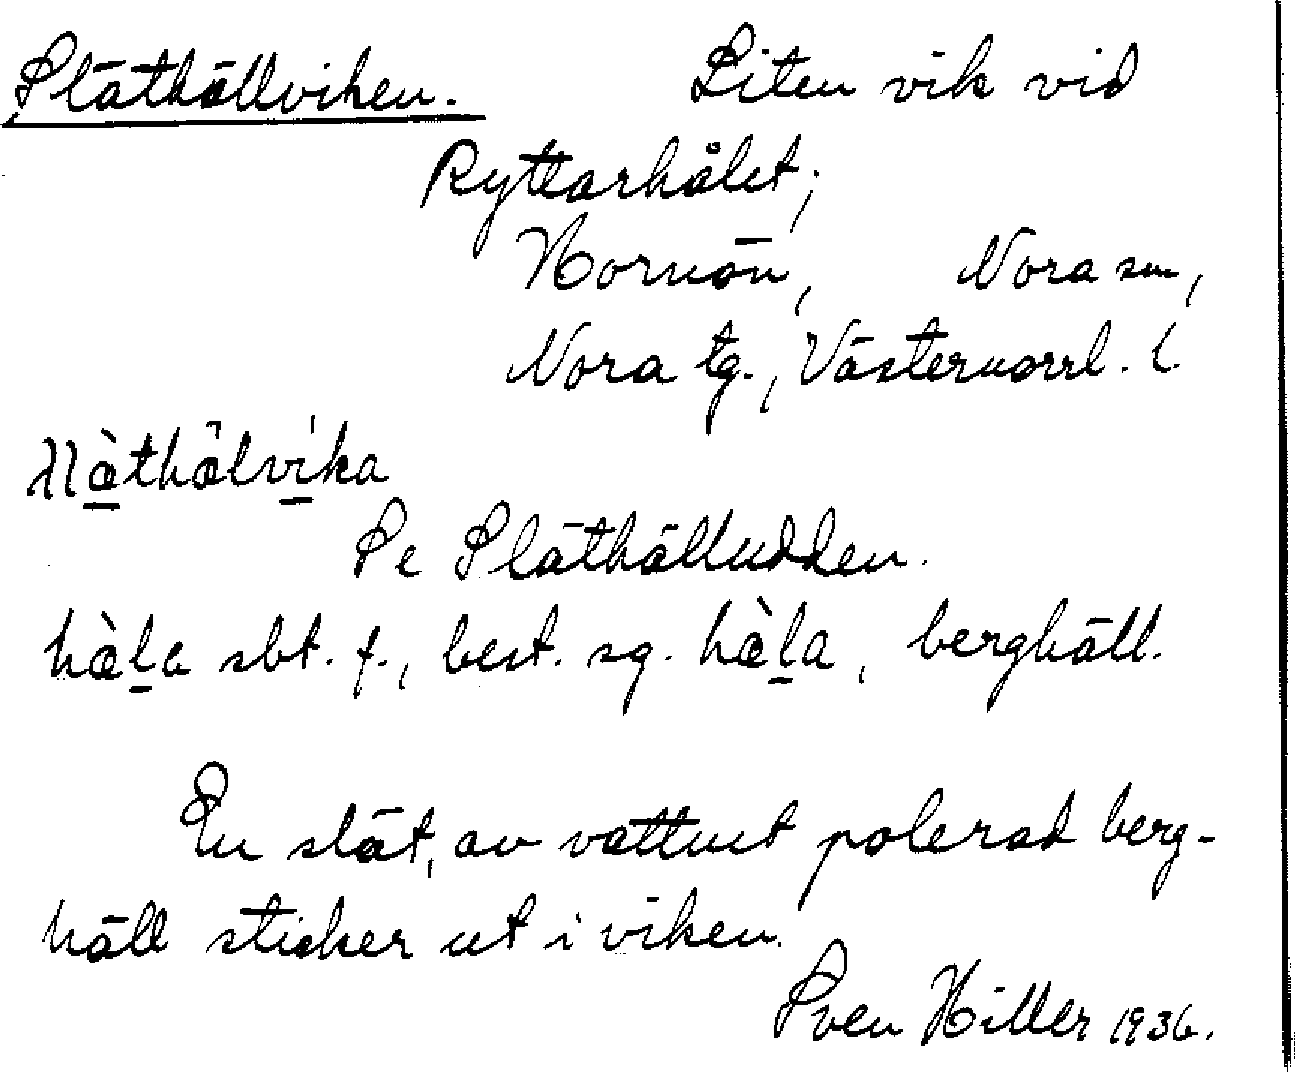 Släthällviken. Liten vik vid
Ryttarhålet;
Hornön, Nora sn,
Nora tg., Västernorrl. l.
slæ̀thälvi'ka
Se Släthälludden.
hæ̀la sbt. f., best. sg. hæ̀la, berghäll.
En slät, av vattnet polerad berg-
häll sticker ut i viken.
Sven Hiller 1936.